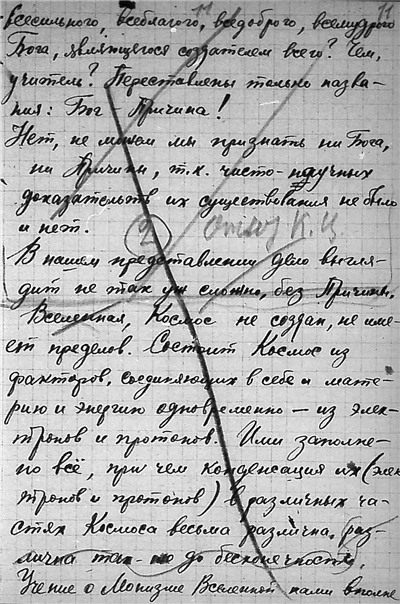 11 11
всесильного, всеблагого, вседоброго, всемудрого
Бога, являющегося создателем всего? Чем,
учитель? Переставлены только назва-
ния: Бог – Причина!
Нет, не можем мы признать ни Бога,
ни Причины, т.к. чисто-научных
доказательств их существования не было
и нет.
2 К. Ц.
В нашем представлении дело выгля-
дит не так уж сложно, без Причины.
Вселенная, Космос не создан, не име-
ет пределов. Состоит Космос из
факторов, соединяющих в себе и мате-
рию и энергию одновременно – из элек-
тронов и протонов. Ими заполне-
но всё, при чем конденсация их (элек
тронов и протонов) в различных ча-
стях Космоса весьма различна, раз-
лична так до бесконечности.
Учение о Монизме Вселенной нами вполне